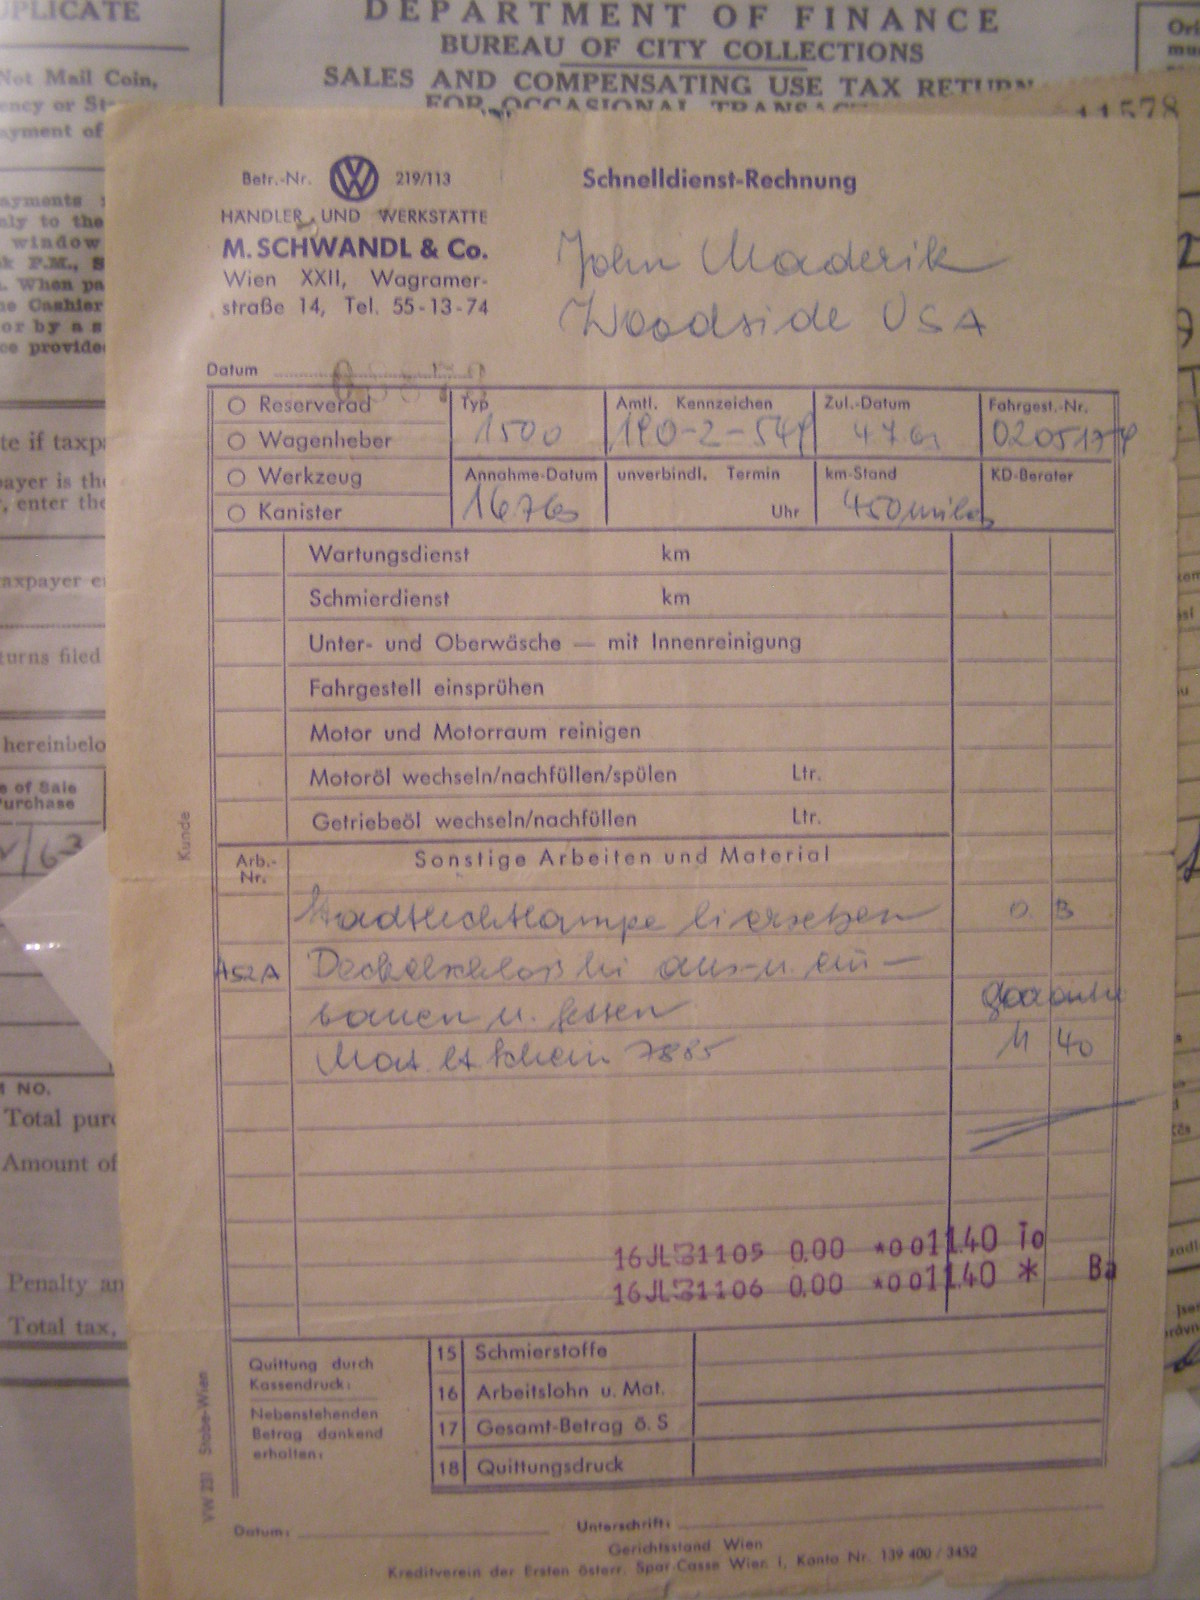 DEPARTMENT OF FINANCE
BUREAU OF CITY COLLECTIONS
SALES AND COMPENSATING USE TAX RETURN
FOR OCCASIONAL
11578
Not Mail Coin,
payment of
ayments
window
P.M.,
When
Cashier
or by a
te if
payer is the
, enter the
taxpayer
turns filed
hereinbelo
e of Sale
Purchase
NO.
Total
Amount of
Penalty
Total tax,
Betr.-Nr. VW 219/113
HÄNDLER UND WERKSTÄTTE
M. SCHWANDL & Co.
Wien XXII, Wagramer-
straße 14, Tel. 55-13-74
Schnelldienst-Rechnung
John Maderik
Woodside USA
Datum
Reserverad
Wagenheber
Werkzeug
Kanister
Typ Amtl. Kennzeichen Zul.-Datum Fahrgest.-Nr.
1500
Annahme-Datum unverbindl. Termin km-Stand KD-Berater
Uhr 450 miles
Wartungsdienst km
Schmierdienst km
Unter- und Oberwäsche — mit Innenreinigung
Fahrgestell einsprühen
Motor und Motorraum reinigen
Motoröl wechseln/nachfüllen/spülen Ltr.
Getriebeöl wechseln/nachfüllen Ltr.
Kunde
Arb.-
Nr.
Sonstige Arbeiten und Material
Stadtlichtlampe li ersetzen
A52A Deckelschloß li aus- u. ein-
bauen u.
Mat. lt Schein 7885 11 40
0.00 *001140 To
0.00 *001140 * Ba
Quittung durch
Kassendruck:
Nebenstehenden
Betrag dankend
erhalten:
15 Schmierstoffe
16 Arbeitslohn u. Mat.
17 Gesamt-Betrag ö. S
18 Quittungsdruck
VW 231 Stabe-Wien
Datum: Unterschrift:
Gerichtsstand Wien
Kreditverein der Ersten österr. Spar-Casse Wien I, Konto Nr. 139 400 / 3452